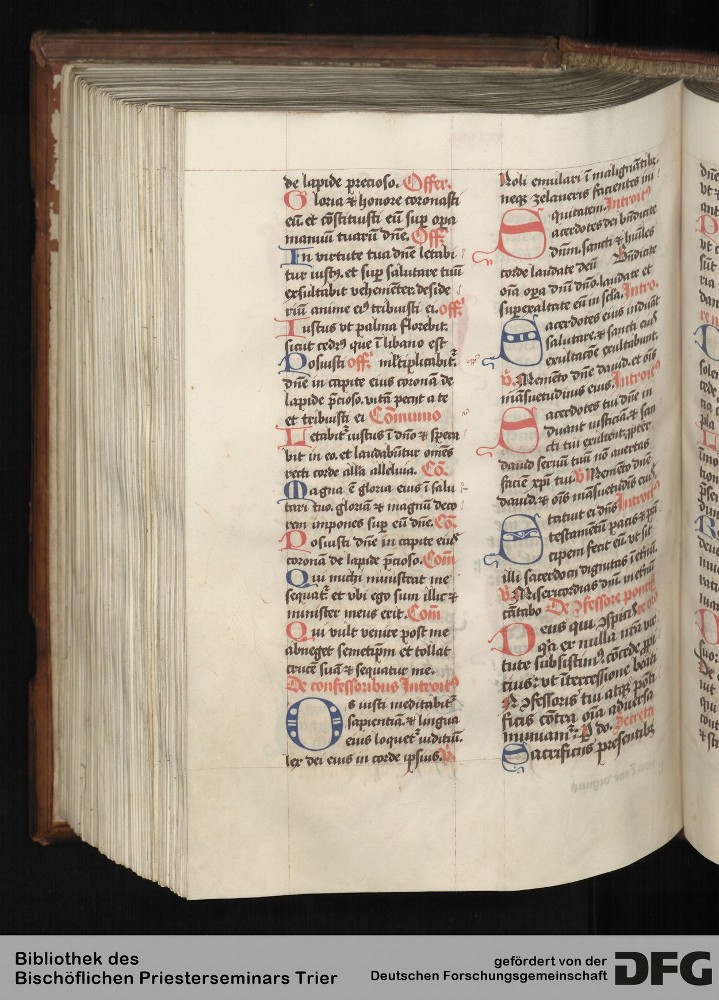 de lapide precioso. Offer.
Gloria ⁊ honore coronasti
eū. et cōstituisti eū sup opa
manuū tuarū dn̄e. Off
In virtute tua dn̄e letabi
tur iustꝰ. et sup salutare tuū
exsultabit vehementer. deside
riū anime eiꝰ tribuisti ei. off
Iustus vt palma florebit.
sicut cedrꝰ que ī libano est
Posuisti off ml̓tiplicabit̄.
dn̄e in capite eius coronā de
lapide p̄cioso. vitā petijt a te
et tribuisti ei Cōmunio
Letabit̄ iustus ī dn̄o ⁊ spera
bit in eo. et laudabūtur om̄es
recti corde all'a alleluia. Cō.
Magna ē gloria eius ī salu
tari tuo. gloriā ⁊ magnū deco
rem impones sup eū dn̄e. Cō.
Posuisti dn̄e in capite eiꝰ
coronā de lapide p̄cioso. Com̄
Qui michi ministrat me
sequat̄. et vbi ego sum illic ⁊
minister meus erit. Com̄
Qui vult venire post me
abneget semetip̄m et tollat
crucē suā ⁊ sequatur me.
De confessoribus Introitꝰ
Os iusti meditabit̄
sapientiā. ⁊ lingua
eius loquet̄ iudiciū.
lex dei eius in corde ipsius. V
Noli emulari ī malignātibꝫ.
neqꝫ zelaueris facientes ini
quitatem. Introitꝰ
Sacerdotes dei bn̄dicite
dn̄m. sancti ⁊ hūiles
corde laudate deū Bn̄dicite
oīa opa dn̄i dn̄o. laudate et
supexaltate eū in sc̄la. Intro.
Sacerdotes eius induāt
salutare. ⁊ sancti eiꝰ
exultacōe exultabunt.
V. Memēto dn̄e dauid. et oīs
māsuetudinis eius. Introitꝰ
Sacerdotes tui dn̄e in
duant iusticiā. ⁊ san
cti tui exultent. ꝓpter
dauid seruū tuū nō auertas
faciē xp̄i tui. V Memēto dn̄e
dauid. ⁊ oīs māsuetudīs eiꝰ. Introitꝰ
Statuit ei dn̄s
testamētū pacis ⁊ p̄n
cipem fecit eū. vt sit
illi sacerdocij dignitas ī et̄nū.
V Misericordias dn̄i in et̄nū
cātabo De ꝯfessore pontif.
Deus qui ꝯspicis
q̄a ex nulla nr̄a vir
tute subsistimꝰ. cōcede ꝓpi
cius: vt ītercessione beati
N ꝯfessoris tui atqꝫ pōti
ficis cōtra oīa aduersa
muniamur. P do. Secreta
Sacrificiis presentibꝫ
Bibliothek des
Bischöflichen Priesterseminars Trier
gefördert von der
Deutschen Forschungsgemeinschaft
DFG